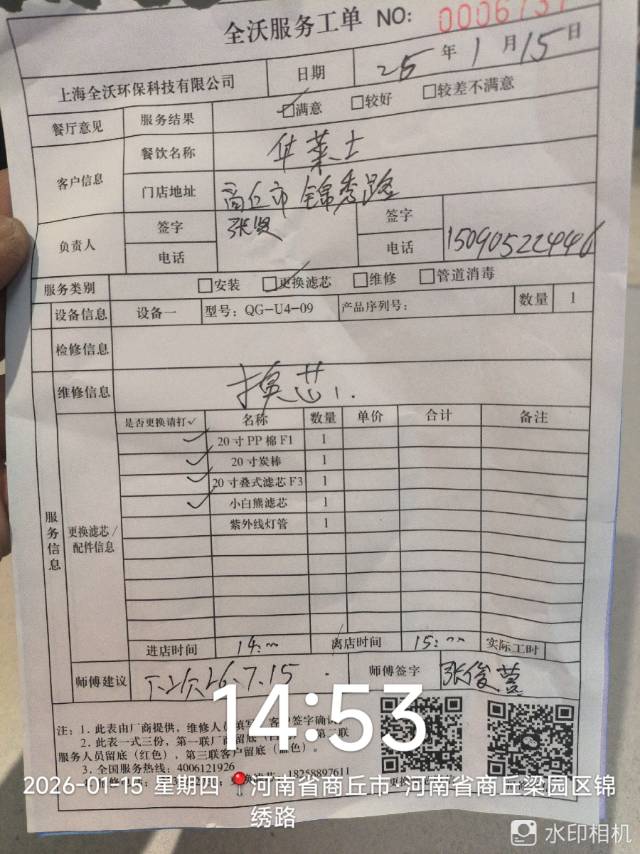 全沃服务工单 NO: 0006737
上海全沃环保科技有限公司 日期 25年1月15日
餐厅意见 服务结果 ☑满意 □较好 □较差不满意
客户信息 餐饮名称 华莱士
门店地址 商丘市 锦秀路
负责人 签字 张 签字
电话 电话 15090522446
服务类别 □安装 ☑更换滤芯 □维修 □管道消毒
设备信息 设备一 型号: QG-U4-09 产品序列号: 数量 1
检修信息
维修信息 换芯1.
服务信息
更换滤芯/配件信息
是否更换请打✓ 名称 数量 单价 合计 备注
✓ 20寸PP棉F1 1
✓ 20寸炭棒 1
✓ 20寸叠式滤芯F3 1
✓ 小白熊滤芯 1
紫外线灯管 1
进店时间 14:00 离店时间 15:00 实际工时
师傅建议 下次26.7.15. 师傅签字 张俊
14:53
注: 1. 此表由厂商提供, 维修人 填写, 客户签字确认
2. 此表一式三份, 第一联厂 留底 第二联
服务人员留底(红色), 第三联客户留底(蓝色)。
3. 全国服务热线: 4006121926
18258897611
2026-01-15 星期四 河南省商丘市·河南省商丘梁园区锦
绣路
水印相机